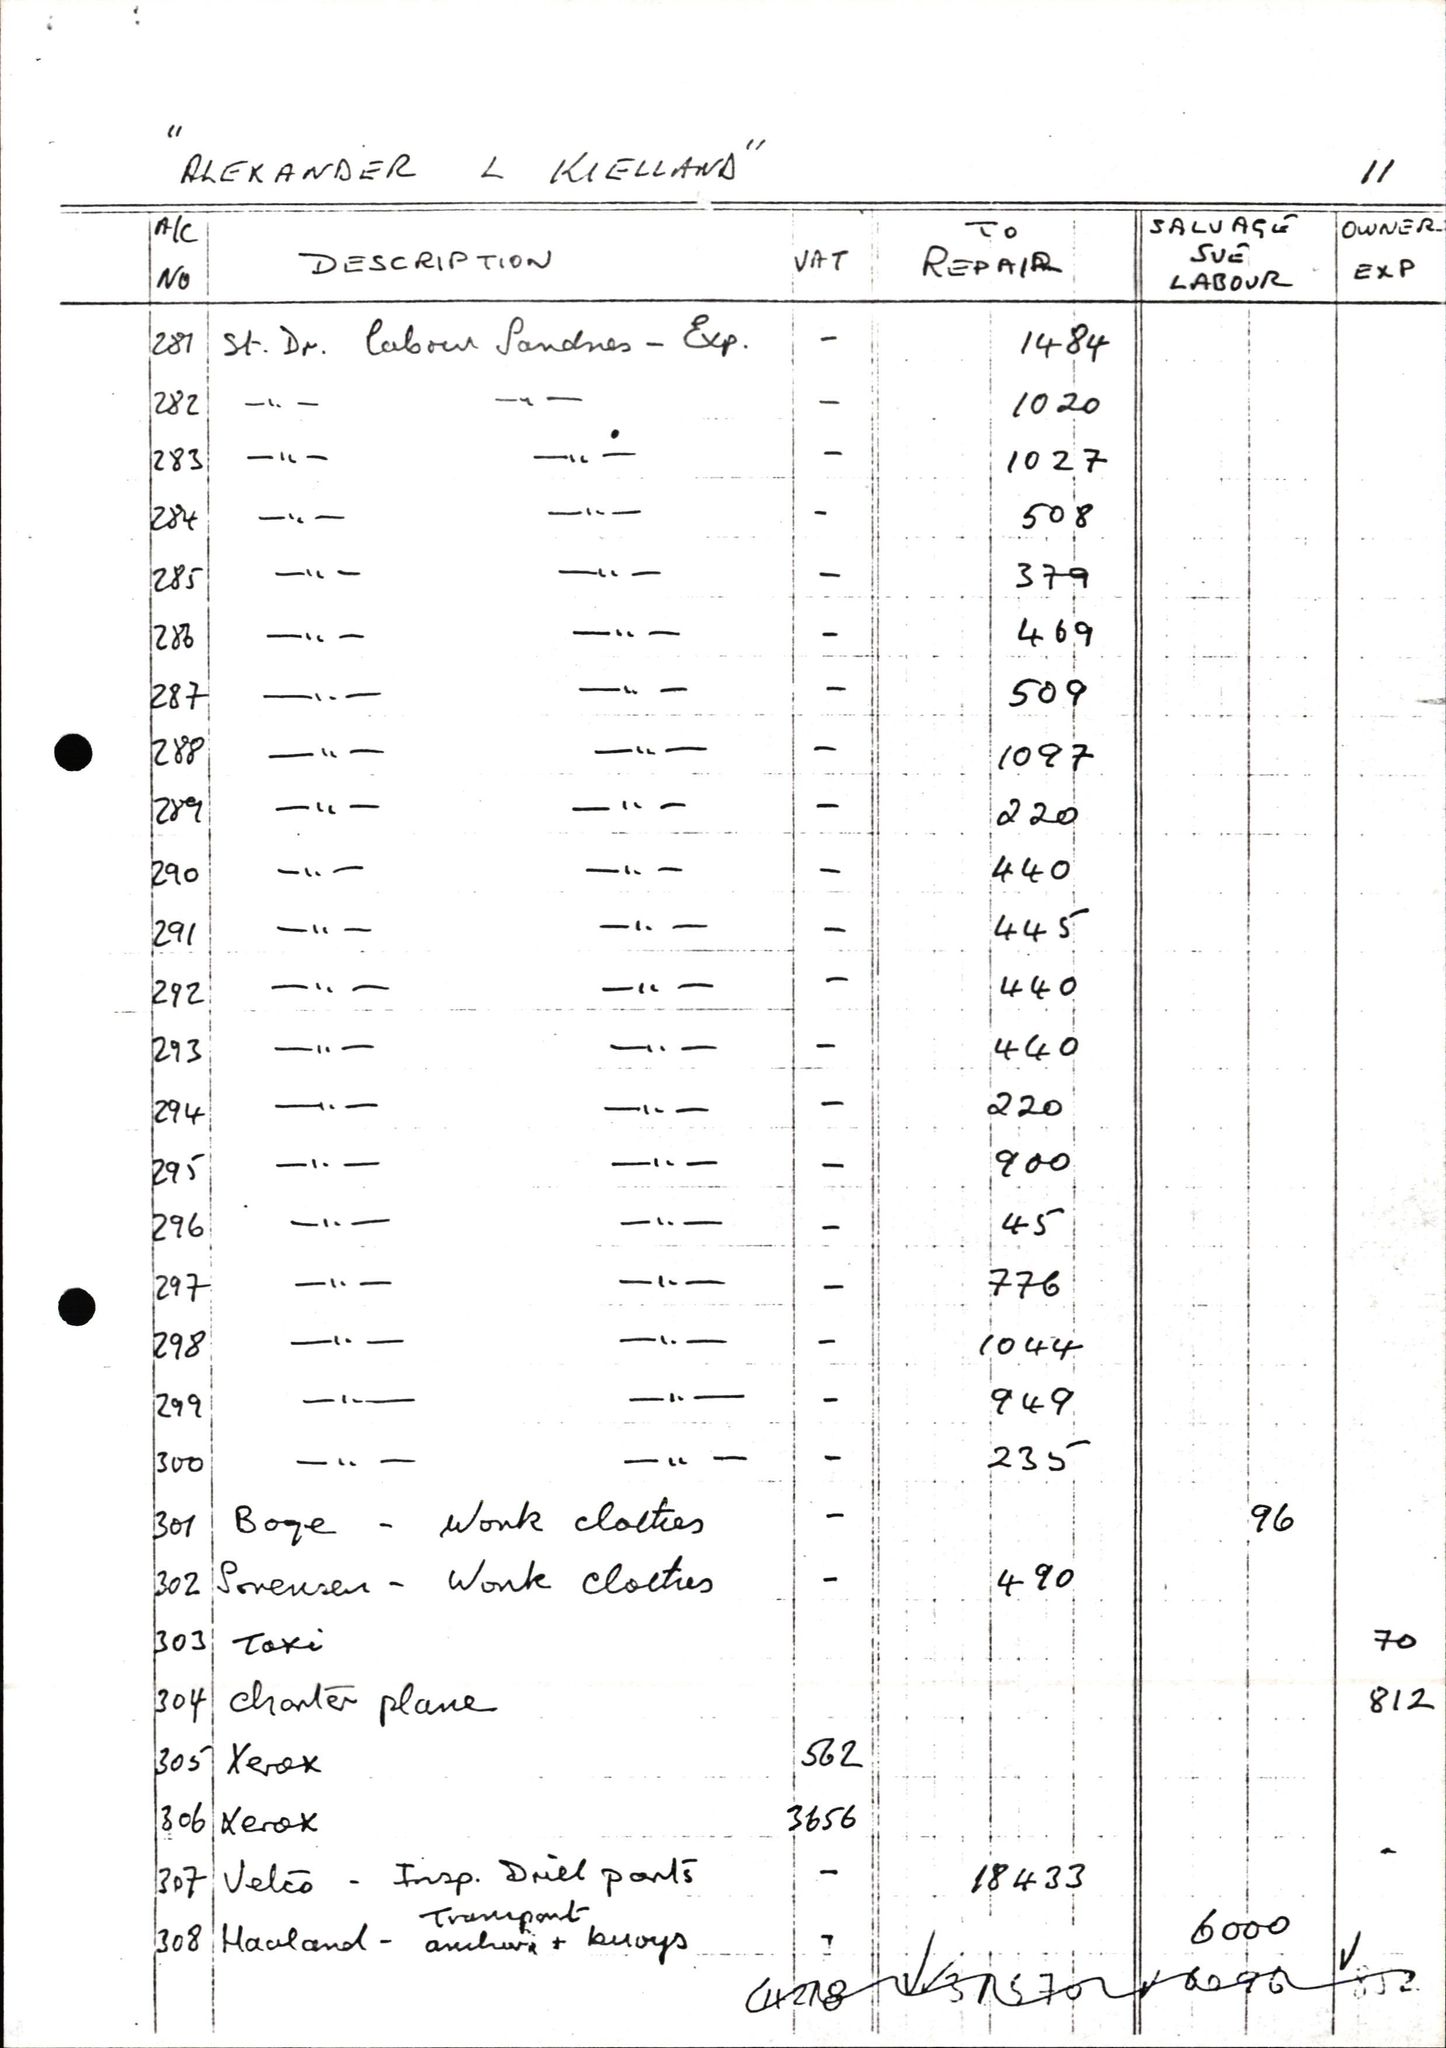 "ALEXANDER L KIELLAND" 11
A/C NO DESCRIPTION VAT TO REPAIR SALVAGE SUE LABOUR OWNER EXP
281 St. Dr. labour Sandnes - Exp. - 1484
282 —"— —"— - 1020
283 —"— —"— - 1027
284 —"— —"— - 508
285 —"— —"— - 379
286 —"— —"— - 469
287 —"— —"— - 509
288 —"— —"— - 1097
289 —"— —"— - 220
290 —"— —"— - 440
291 —"— —"— - 445
292 —"— —"— - 440
293 —"— —"— - 440
294 —"— —"— - 220
295 —"— —"— - 900
296 —"— —"— - 45
297 —"— —"— - 776
298 —"— —"— - 1044
299 —"— —"— - 949
300 —"— —"— - 235
301 Boge - Work clothes - 96
302 Sorensen - Work clothes - 490
303 Taxi 70
304 Charter plane 812
305 Xerox 562
306 Xerox 3656
307 Velco - Insp. Drill parts - 18433 -
308 Haaland - Transport anchors + buoys - 6000
4218 31570 6096